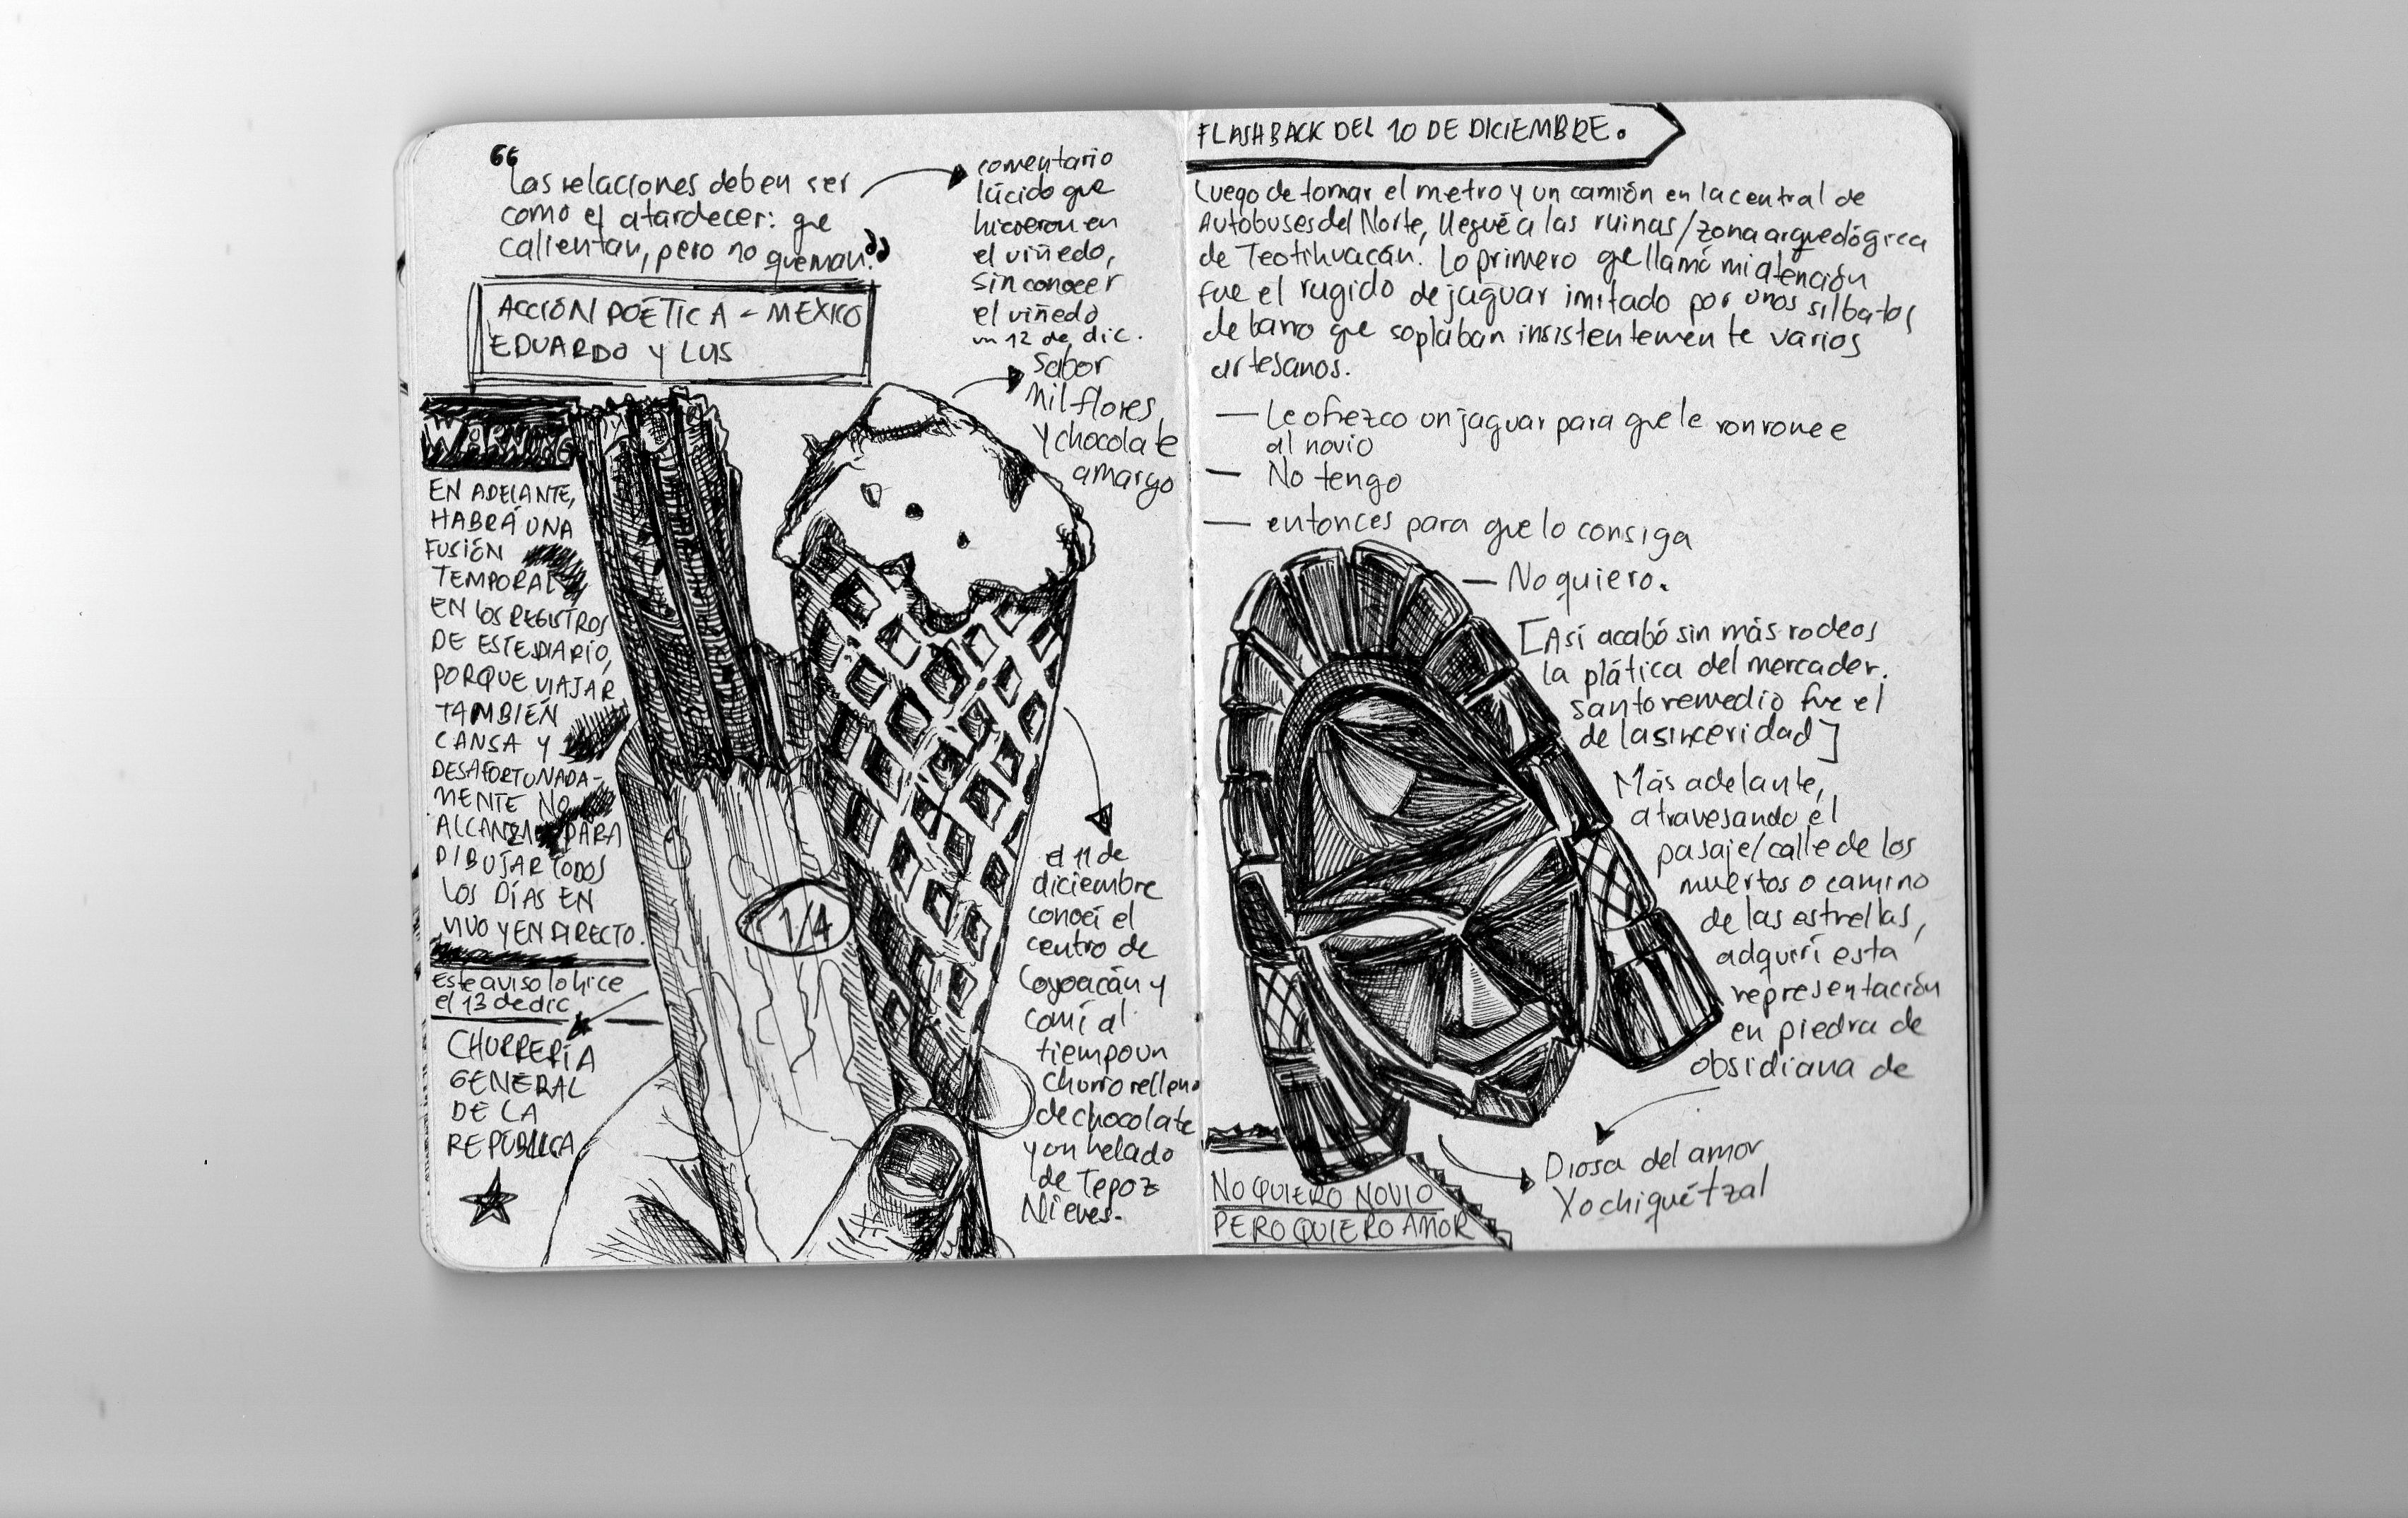 "Las relaciones deben ser
como el atardecer: que
calientan, pero no queman."
ACCIÓN POÉTICA - MEXICO
EDUARDO Y LUIS
comentario
lúcido que
hicieron en
el viñedo,
sin conocer
el viñedo
un 12 de dic.
Sabor
Mil flores
y chocolate
amargo
WARNING
EN ADELANTE,
HABRÁ UNA
FUSIÓN
TEMPORAL
EN LOS REGISTROS
DE ESTE DIARIO,
PORQUE VIAJAR
TAMBIÉN
CANSA Y
DESAFORTUNADA-
MENTE NO
ALCANZA PARA
DIBUJAR TODOS
LOS DÍAS EN
VIVO Y EN DIRECTO.
Este aviso lo hice
el 13 de dic
CHURRERÍA
GENERAL
DE LA
REPÚBLICA
1/4
el 11 de
diciembre
conocí el
centro de
Coyoacán y
comí al
tiempo un
churro relleno
de chocolate
y un helado
de Tepoz
Nieves.
FLASHBACK DEL 10 DE DICIEMBRE.
Luego de tomar el metro y un camión en la central de
Autobuses del Norte, llegué a las ruinas/zona arqueológica
de Teotihuacán. Lo primero qe llamó mi atención
fue el rugido de jaguar imitado por unos silbatos
de barro que soplaban insistentemente varios
artesanos.
— Le ofrezco un jaguar para que le ronronee
al novio
— No tengo
— entonces para que lo consiga
— No quiero.
[Así acabó sin más rodeos
la plática del mercader.
santo remedio fue el
de la sinceridad]
Más adelante,
atravesando el
pasaje/calle de los
muertos o camino
de las estrellas,
adquirí esta
representación
en piedra de
obsidiana de
Diosa del amor
Xochiquétzal
NO QUIERO NOVIO
PERO QUIERO AMOR